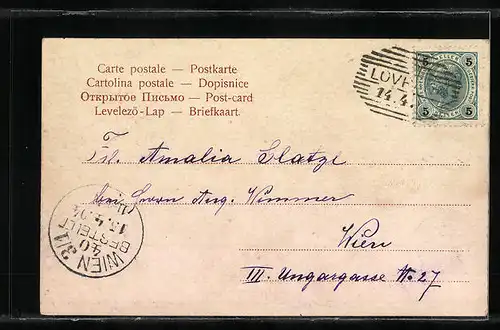 Carte postale — Postkarte
Cartolina postale — Dopisnice
Открытое Письмо — Post-card
Levelező-Lap — Briefkaart.
5 5
LOVR
14.4.
5 5
T.
Frl. Amalia Glatze
bei Herrn Aug. Wimmer
Wien
III. Ungargasse No. 27
WIEN 3/1
40
BESTELLT
15.4.04